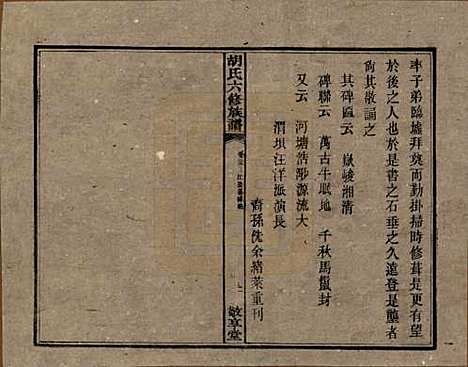 率子弟臨墟拜奠而勤掛掃時修葺是更有望
於後之人也於是書之石垂之久遠登是壟者
尚其敬誦之
其碑匾云 嶽峻湘清
碑聯云 萬古牛眠地 千秋馬鬣封
又云 河塘浩渺源流大
渭坝汪洋派演長
裔孫 余緒 重刊
胡氏六修族譜
敬享堂